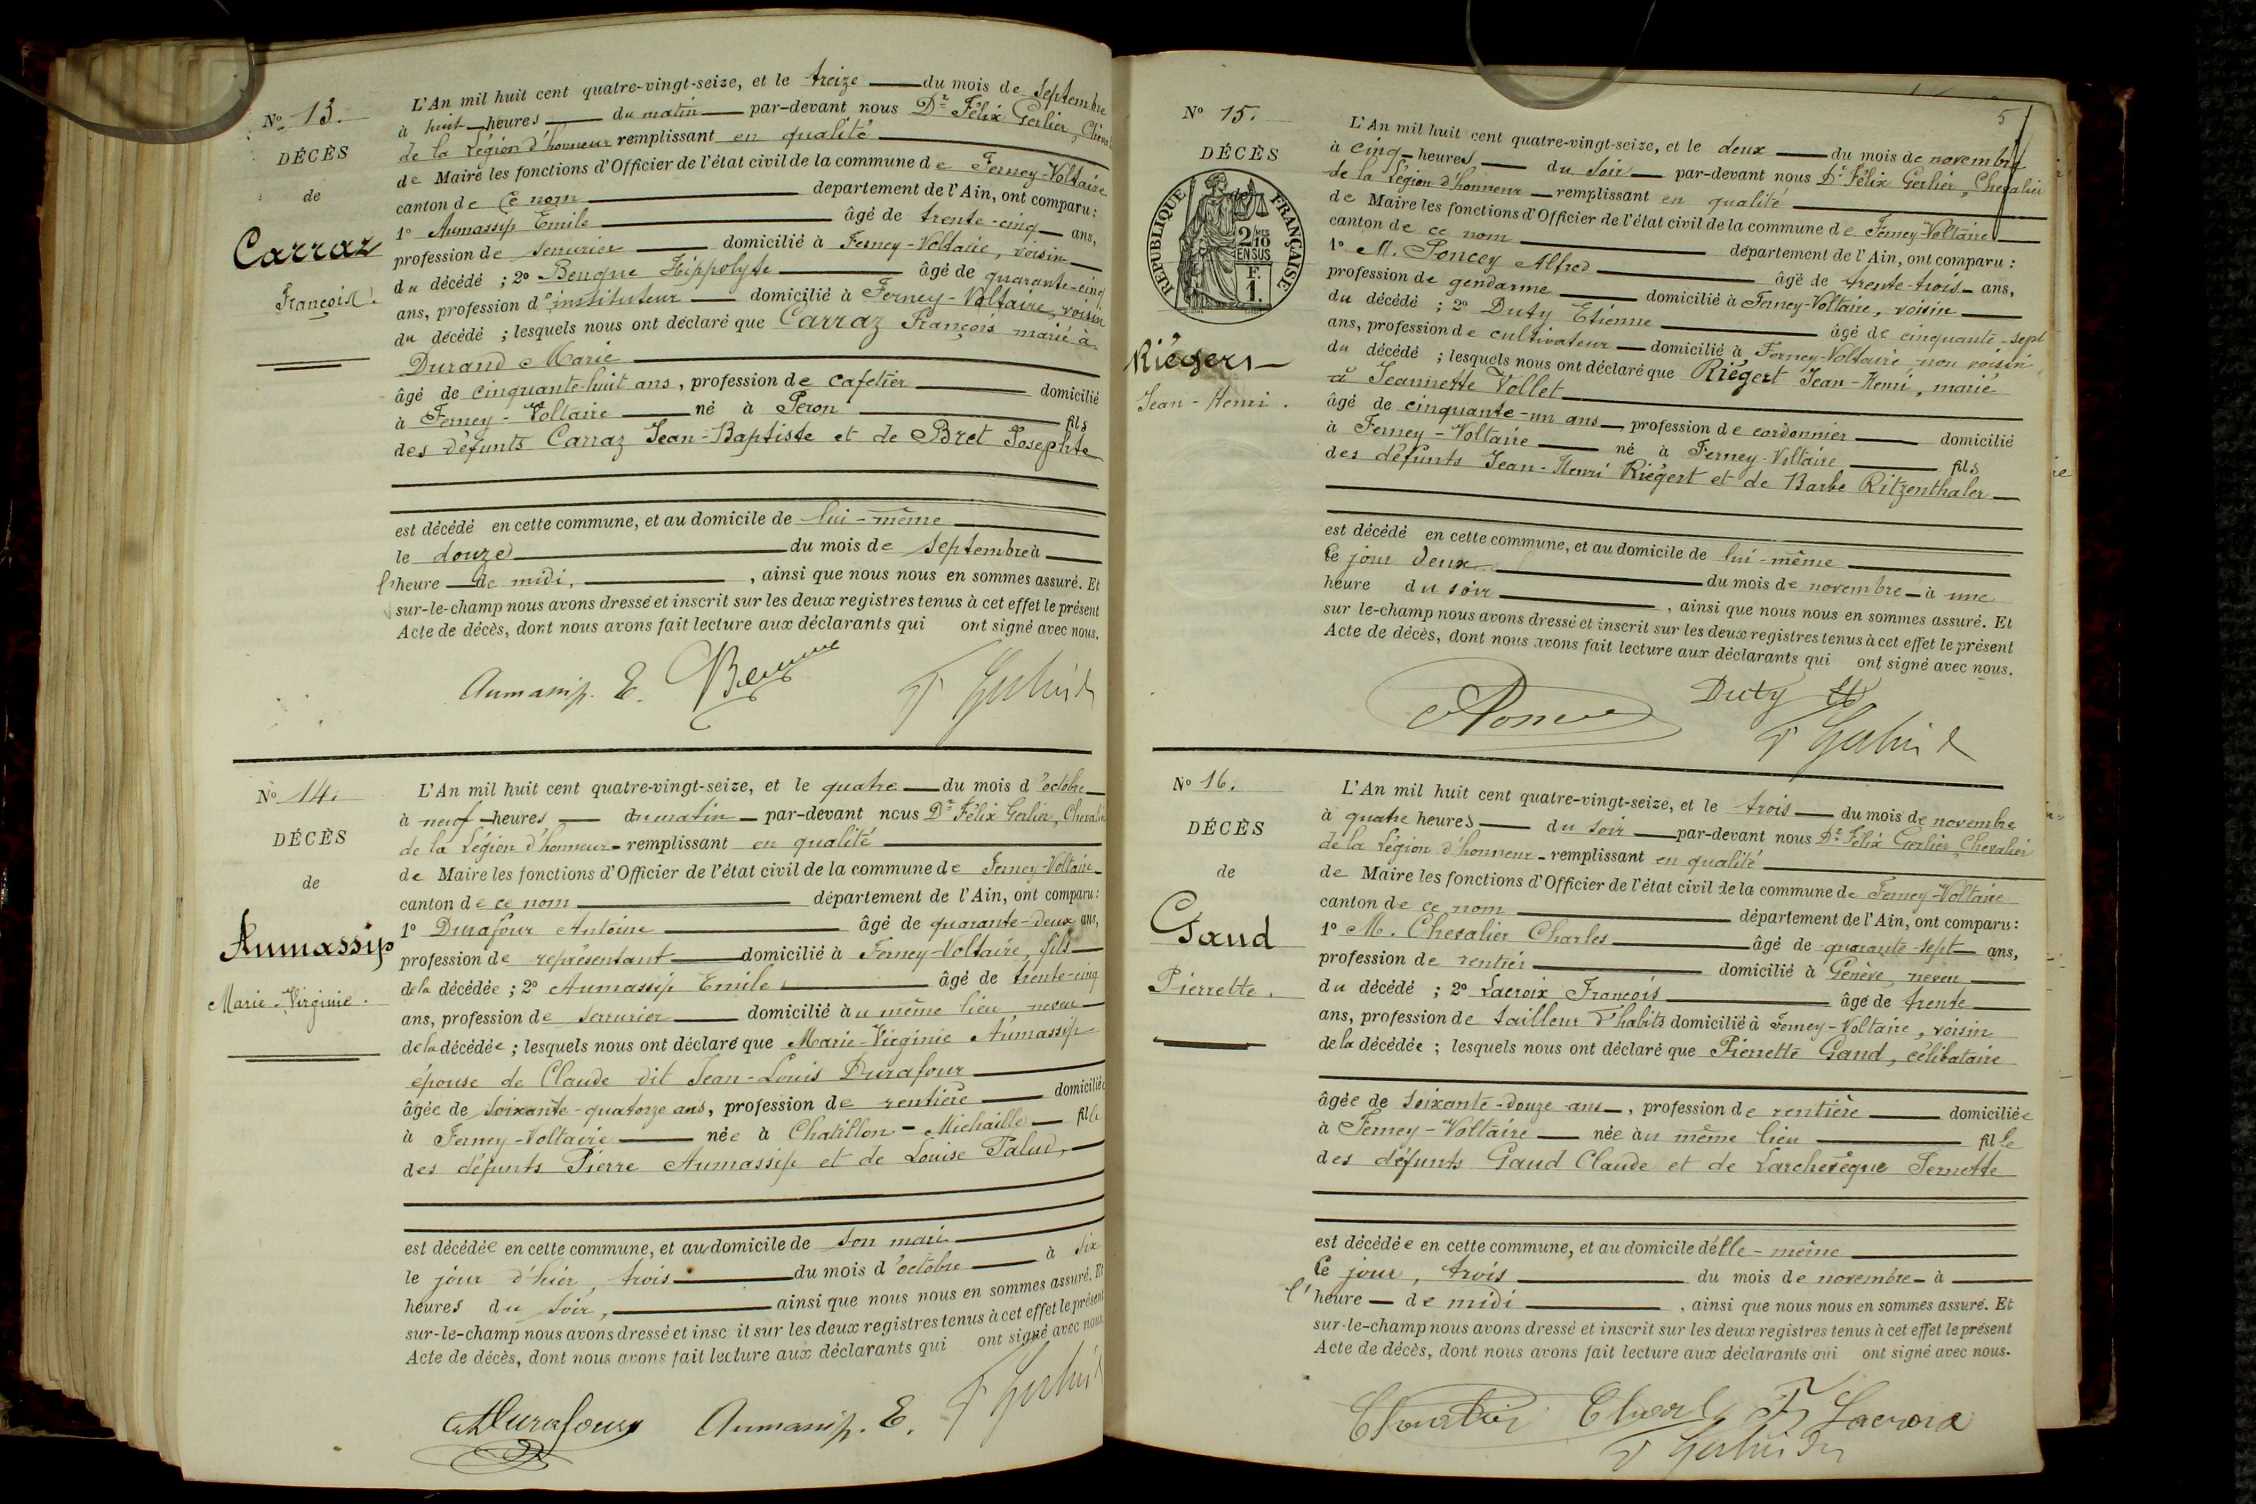 Nº 13.
DÉCÈS
de
Carraz
François.
L'An mil huit cent quatre-vingt-seize, et le treize du mois de septembre
à huit heures du matin par-devant nous Dr Félix Gerlier, Cheval
de la Légion d'honneur remplissant en qualité
de Maire les fonctions d'Officier de l'état civil de la commune de Ferney-Voltaire
canton de ce nom département de l'Ain, ont comparu :
1º Aumassip Emile âgé de trente-cinq ans,
profession de serrurier domicilié à Ferney-Voltaire, voisin
du décédé ; 2º Bengue Hippolyte âgé de quarante-cinq
ans, profession d'instituteur domicilié à Ferney-Voltaire, voisin
du décédé ; lesquels nous ont déclaré que Carraz François marié à
Durand Marie
âgé de cinquante-huit ans, profession de cafetier domicilié
à Ferney-Voltaire né à Peron fils
des défunts Carraz Jean-Baptiste et de Bret Josephte
est décédé en cette commune, et au domicile de lui-même
le douze du mois de septembre à
l'heure de midi, , ainsi que nous nous en sommes assuré. Et
sur-le-champ nous avons dressé et inscrit sur les deux registres tenus à cet effet le présent
Acte de décès, dont nous avons fait lecture aux déclarants qui ont signé avec nous.
Aumassip. E.
Nº 14.
DÉCÈS
de
Aumassip
Marie-Virginie.
L'An mil huit cent quatre-vingt-seize, et le quatre du mois d'octobre
à neuf heures du matin par-devant nous Dr Félix Gerlier, Chevali
de la Légion d'honneur remplissant en qualité
de Maire les fonctions d'Officier de l'état civil de la commune de Ferney-Voltaire
canton de ce nom département de l'Ain, ont comparu :
1º Durafour Antoine âgé de quarante-deux ans,
profession de représentant domicilié à Ferney-Voltaire, fils
de la décédée ; 2º Aumassip Emile âgé de trente-cinq
ans, profession de serrurier domicilié au même lieu neveu
de la décédée ; lesquels nous ont déclaré que Marie-Virginie Aumassip
épouse de Claude dit Jean-Louis Durafour
âgée de soixante-quatorze ans, profession de rentière domiciliée
à Ferney-Voltaire née à Chatillon-Michaille fille
des défunts Pierre Aumassip et de Louise Palud,
est décédée en cette commune, et au domicile de son mari
le jour d'hier, trois du mois d'octobre à six
heures du soir, ainsi que nous nous en sommes assuré. Et
sur-le-champ nous avons dressé et insc it sur les deux registres tenus à cet effet le présent
Acte de décès, dont nous avons fait lecture aux déclarants qui ont signé avec nous
Durafour Aumassip. E.
5
Nº 15.
DÉCÈS
de
RÉPUBLIQUE FRANÇAISE
2/10 EN SUS
F. 1.
Riégert
Jean-Henri.
L'An mil huit cent quatre-vingt-seize, et le deux du mois de novembre
à cinq heures du soir par-devant nous Dr Félix Gerlier, Chevalier
de la Légion d'honneur remplissant en qualité
de Maire les fonctions d'Officier de l'état civil de la commune de Ferney-Voltaire
canton de ce nom département de l'Ain, ont comparu :
1º M. Poncey Alfred âgé de trente-trois ans,
profession de gendarme domicilié à Ferney-Voltaire, voisin
du décédé ; 2º Duty Etienne âgé de cinquante-sept
ans, profession de cultivateur domicilié à Ferney-Voltaire non voisin
du décédé ; lesquels nous ont déclaré que Riégert Jean-Henri, marié
à Jeannette Vollet
âgé de cinquante-un ans profession de cordonnier domicilié
à Ferney-Voltaire né à Ferney-Voltaire fils
des défunts Jean-Henri Riégert et de Barbe Ritzenthaler
est décédé en cette commune, et au domicile de lui-même
Ce jour deux du mois de novembre à une
heure du soir , ainsi que nous nous en sommes assuré. Et
sur le-champ nous avons dressé et inscrit sur les deux registres tenus à cet effet le présent
Acte de décès, dont nous avons fait lecture aux déclarants qui ont signé avec nous.
Duty
Nº 16.
DÉCÈS
de
Gaud
Pierrette.
L'An mil huit cent quatre-vingt-seize, et le trois du mois de novembre
à quatre heures du soir par-devant nous Dr Félix Gerlier, Chevalier
de la Légion d'honneur remplissant en qualité
de Maire les fonctions d'Officier de l'état civil de la commune de Ferney-Voltaire
canton de ce nom département de l'Ain, ont comparu :
1º M. Chevalier Charles âgé de quarante-sept ans,
profession de rentier domicilié à Genève, neveu
du décédé ; 2º Lacroix François âgé de trente
ans, profession de tailleur d'habits domicilié à Ferney-Voltaire, voisin
de la décédée ; lesquels nous ont déclaré que Pierrette Gaud, célibataire
âgée de soixante-douze ans , profession de rentière domiciliée
à Ferney-Voltaire née au même lieu fille
des défunts Gaud Claude et de Larchevêque Pernette
est décédée en cette commune, et au domicile d'elle-même
Ce jour, trois du mois de novembre à
l'heure de midi , ainsi que nous nous en sommes assuré. Et
sur-le-champ nous avons dressé et inscrit sur les deux registres tenus à cet effet le présent
Acte de décès, dont nous avons fait lecture aux déclarants qui ont signé avec nous.
Lacroix